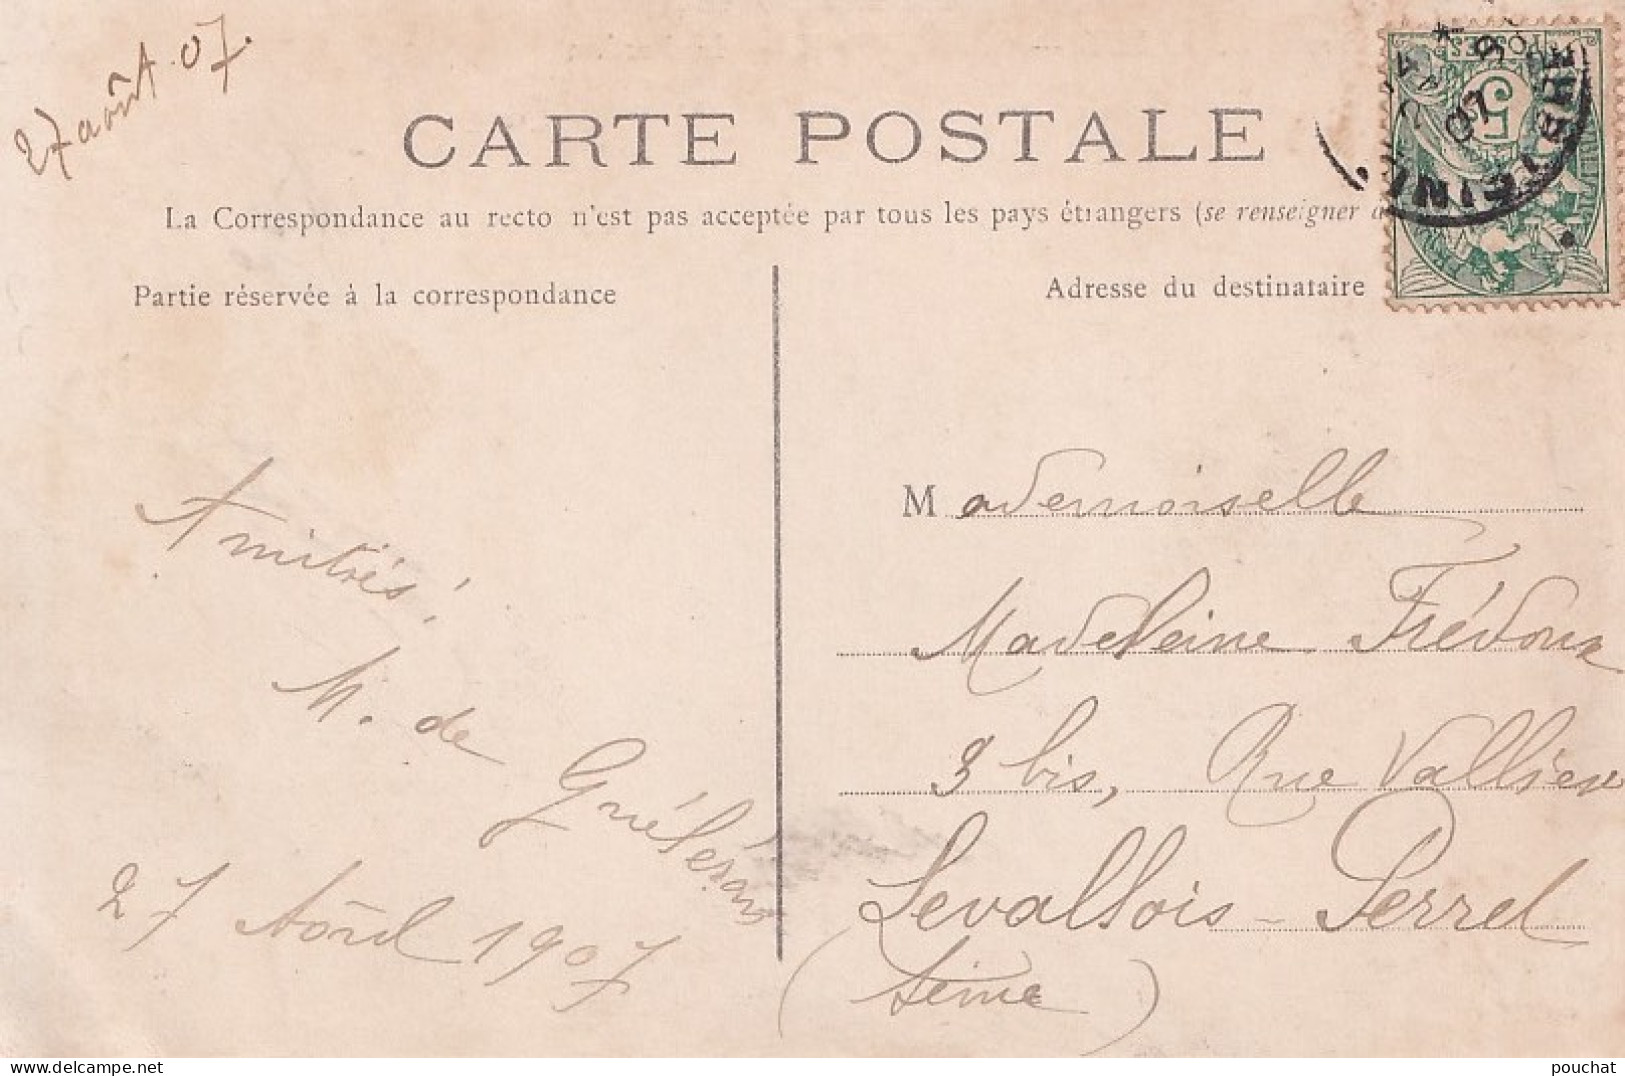 27 août 07.
CARTE POSTALE
La Correspondance au recto n'est pas acceptée par tous les pays étrangers (se renseigner
Partie réservée à la correspondance
Adresse du destinataire
POSTES
5
07
FINISTÈRE
Amitiés!
M. de
27 Août 1907
Mademoiselle
Madeleine
3 bis, Rue Vallier
Levallois-Perret
(Seine)
pouchat